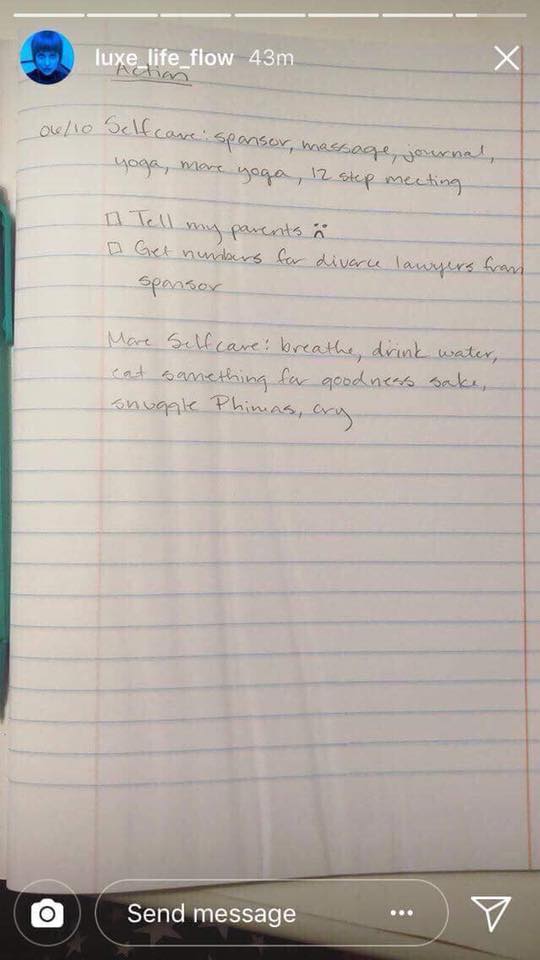 luxe_life_flow 43m
Action
06/10 Selfcare: sponsor, massage, journal,
yoga, more yoga, 12 step meeting
Tell my parents
Get numbers for divorce lawyers from
sponsor
More Selfcare: breathe, drink water,
eat something for goodness sake,
snuggle Phinias, cry
Send message